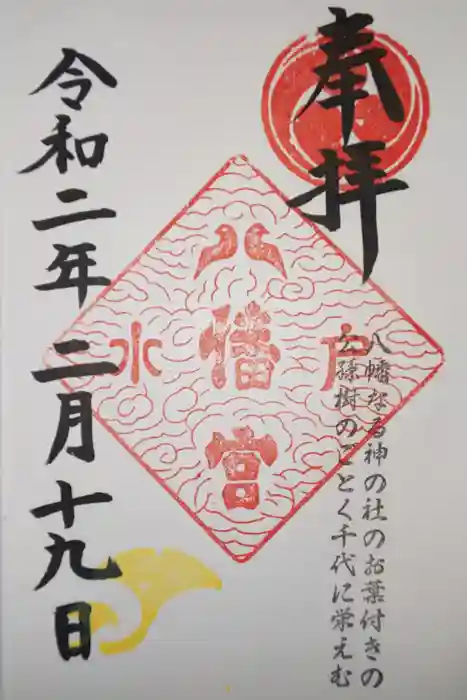 奉拝
八幡なる神の社のお葉付きの
公孫樹のごとく千代に栄えむ
水戸
八幡宮
令和二年二月十九日